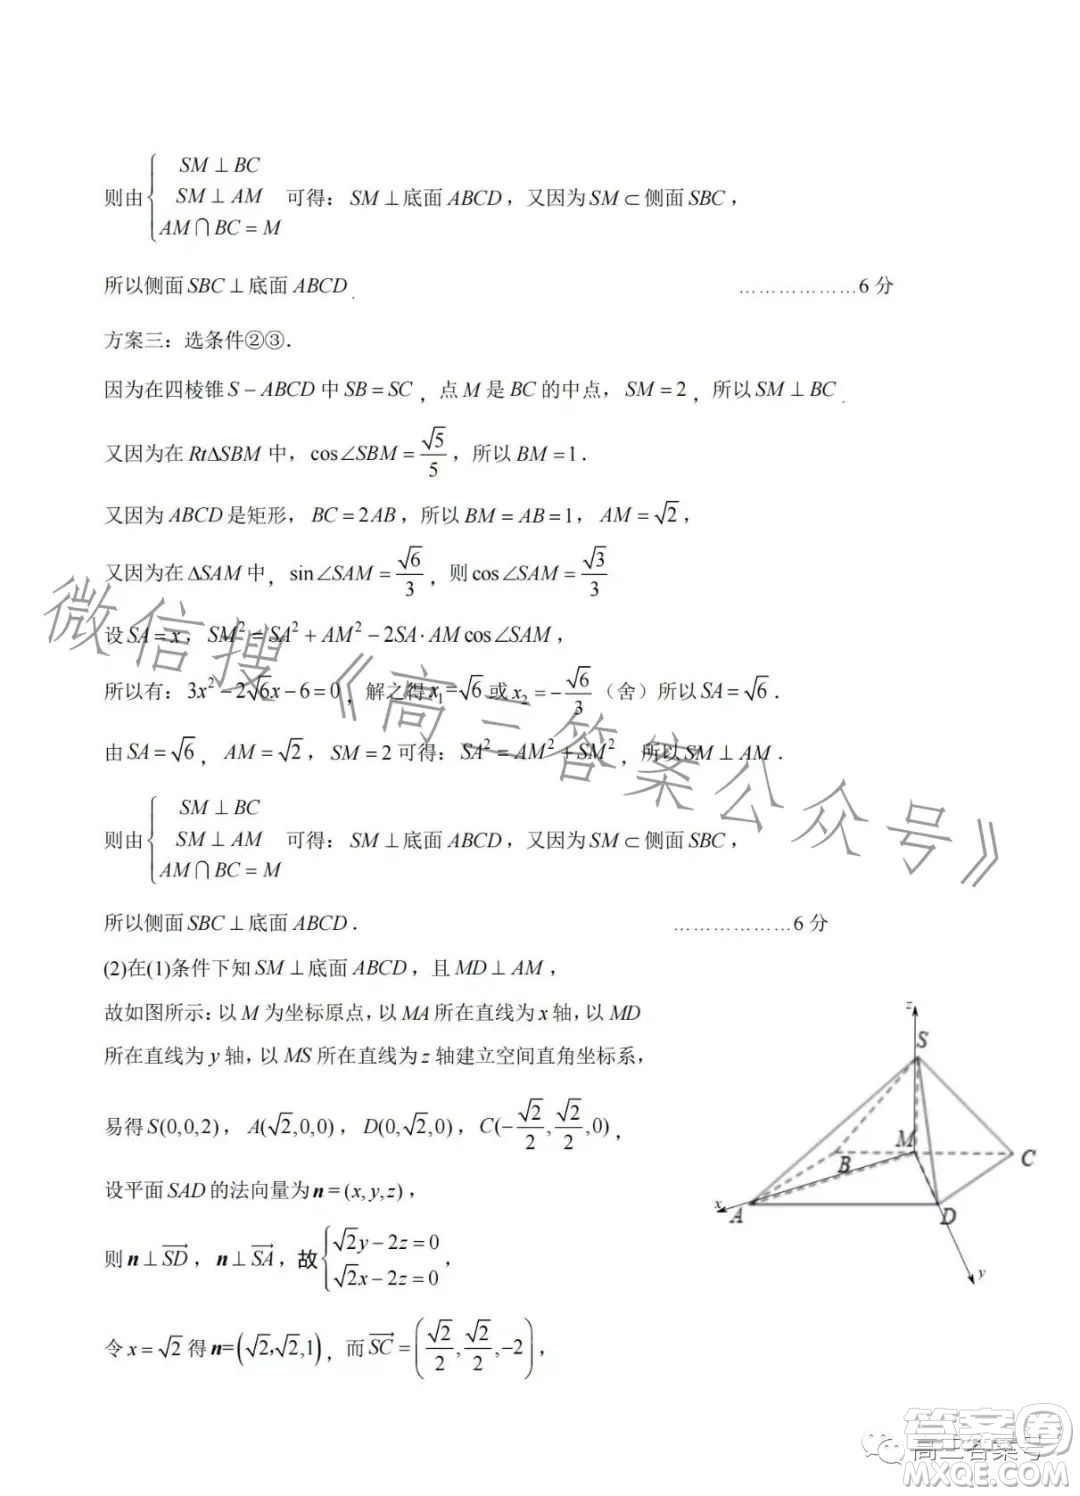 则由{SM⊥BC
SM⊥AM
AM∩BC=M 可得：SM⊥底面ABCD，又因为SM⊂侧面SBC，
所以侧面SBC⊥底面ABCD. ………………6分
方案三：选条件②③．
因为在四棱锥S-ABCD中SB=SC，点M是BC的中点，SM=2，所以SM⊥BC.
又因为在Rt∆SBM中，cos∠SBM=√5/5，所以BM=1．
又因为ABCD是矩形，BC=2AB，所以BM=AB=1，AM=√2，
又因为在∆SAM中，sin∠SAM=√6/3，则cos∠SAM=√3/3
设SA=x，SM²=SA²+AM²-2SA·AMcos∠SAM，
所以有：3x²-2√6x-6=0，解之得x₁=√6或x₂=-√6/3（舍）所以SA=√6．
由SA=√6，AM=√2，SM=2可得：SA²=AM²+SM²，所以SM⊥AM．
则由{SM⊥BC
SM⊥AM
AM∩BC=M 可得：SM⊥底面ABCD，又因为SM⊂侧面SBC，
所以侧面SBC⊥底面ABCD． ………………6分
(2)在(1)条件下知SM⊥底面ABCD，且MD⊥AM，
故如图所示：以M为坐标原点，以MA所在直线为x轴，以MD
所在直线为y轴，以MS所在直线为z轴建立空间直角坐标系，
易得S(0,0,2)，A(√2,0,0)，D(0,√2,0)，C(-√2/2,√2/2,0)，
设平面SAD的法向量为n=(x,y,z)，
则n⊥SD→，n⊥SA→，故{√2y-2z=0
√2x-2z=0，
令x=√2得n=(√2,√2,1)，而SC→=(√2/2,√2/2,-2)，
z
S
M
B
C
x
A
D
y
微信搜《高三答案公众号》
高三答案号
答案圈
MXQE.COM